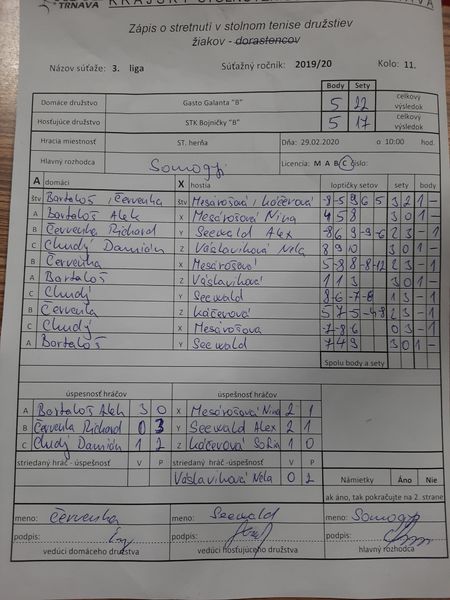 TRNAVA
Zápis o stretnutí v stolnom tenise družstiev
žiakov - dorastencov
Názov súťaže: 3. liga Súťažný ročník: 2019/20 Kolo: 11.
Body Sety
Domáce družstvo Gasto Galanta "B" 5 22 celkový výsledok
Hosťujúce družstvo STK Bojničky "B" 5 17 celkový výsledok
Hracia miestnosť ST. herňa Dňa: 29.02.2020 o 10:00 hod.
Hlavný rozhodca Somogyi Licencia: M A B C číslo:
A domáci X hostia loptičky setov sety body
štv Bartaloš, Červenka štv Mesárošová, Káčerová -8 -5 9 6 5 3 2 1 -
A Bartaloš Alek X Mesárošová Nina 4 5 8 3 0 1 -
B Červenka Richard Y Seewald Alex -8 6 9 -9 -6 2 3 - 1
C Chudý Damián Z Václavíková Nela 8 9 0 3 0 1 -
B Červenka X Mesárošová 5 -8 8 -8 -12 2 3 - 1
A Bartaloš Z Václavíková 1 1 3 3 0 1 -
C Chudý Y Seewald 8 -6 -7 -8 1 3 - 1
B Červenka Z Káčerová 5 7 5 -4 -8 2 3 - 1
C Chudý X Mesárošová -7 -8 6 0 3 - 1
A Bartaloš Y Seewald 7 4 9 3 0 1 -
Spolu body a sety
úspesnosť hráčov úspešnosť hráčov
A Bartaloš Alek 3 0 X Mesárošová Nina 2 1
B Červenka Richard 0 3 Y Seewald Alex 2 1
C Chudý Damián 1 2 Z Káčerová Sofia 1 0
striedaný hráč -úspešnosť V P striedaný hráč -úspešnosť V P Námietky Áno Nie
Václavíková Nela 0 2
ak áno, tak pokračujte na 2. strane
meno: Červenka meno: Seewald meno: Somogyi
podpis: podpis: podpis:
vedúci domáceho družstva vedúci hosťujúceho družstva hlavný rozhodca